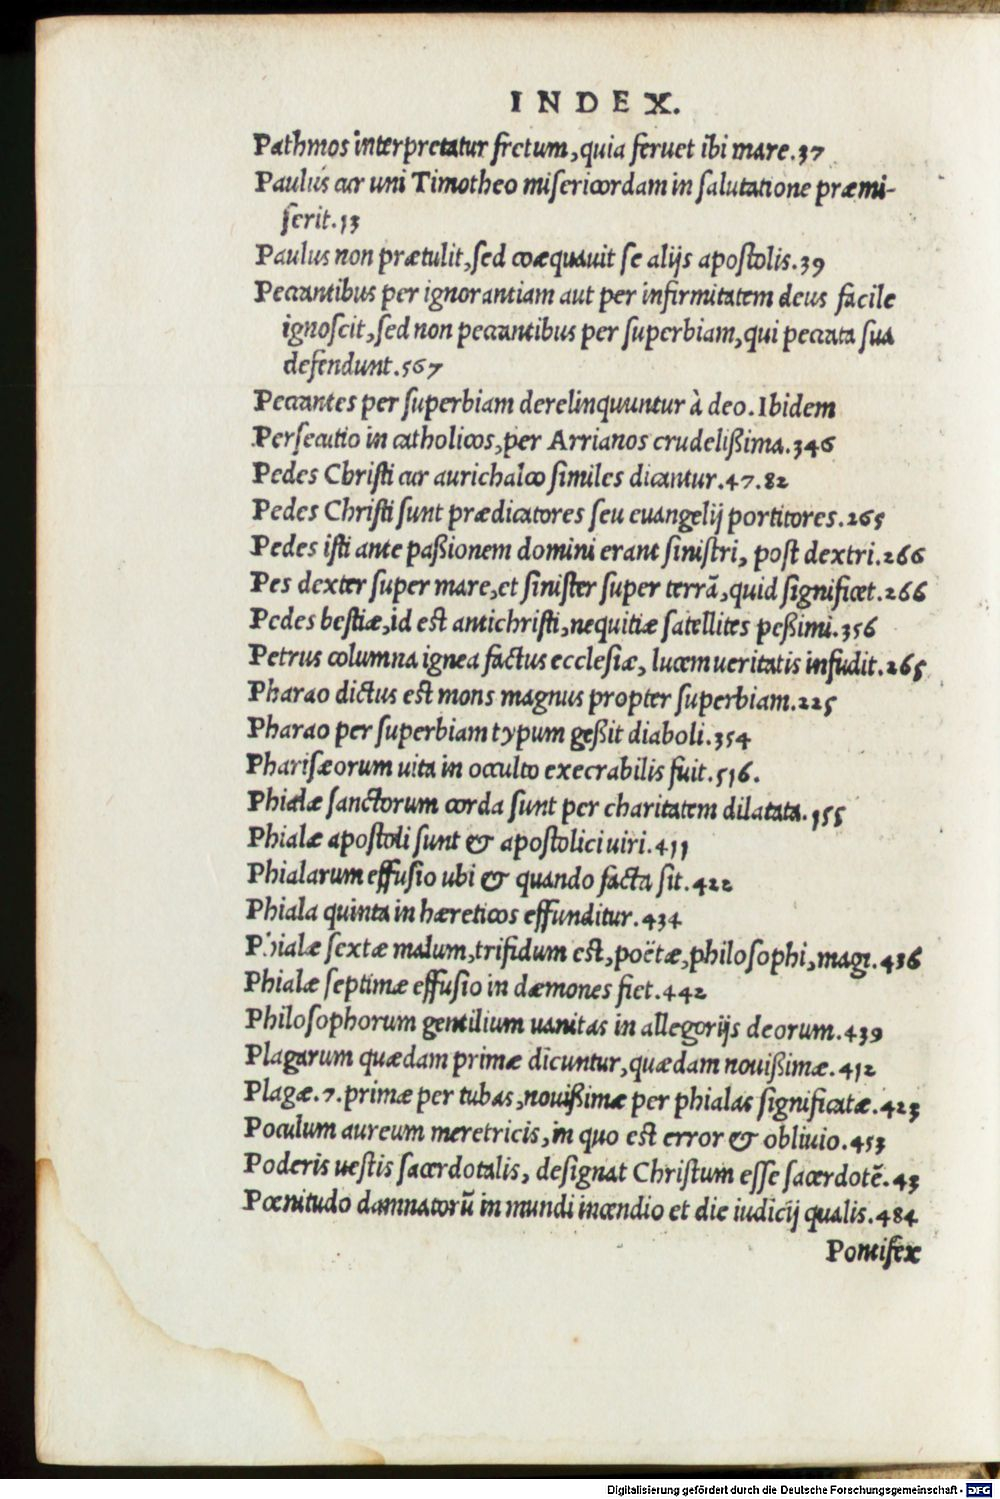 INDEX.
Pathmos interpretatur fretum, quia feruet ibi mare.37
Paulus cur uni Timotheo misericordam in salutatione præmi-
serit.13
Paulus non prætulit, sed coæquauit se alijs apostolis.39
Peccantibus per ignorantiam aut per infirmitatem deus facile
ignoscit, sed non peccantibus per superbiam, qui peccata sua
defendunt.567
Peccantes per superbiam derelinquuntur à deo. Ibidem
Persecutio in catholicos, per Arrianos crudelißima.346
Pedes Christi cur aurichalco similes dicantur.47.82
Pedes Christi sunt prædicatores seu euangelij portitores.265
Pedes isti ante paßionem domini erant sinistri, post dextri.266
Pes dexter super mare, et sinister super terrã, quid significet.266
Pedes bestiæ, id est antichristi, nequitiæ satellites peßimi.356
Petrus columna ignea factus ecclesiæ, lucem ueritatis infudit.265
Pharao dictus est mons magnus propter superbiam.225
Pharao per superbiam typum geßit diaboli.354
Pharisæorum uita in occulto execrabilis fuit.516.
Phialæ sanctorum corda sunt per charitatem dilatata.155
Phialæ apostoli sunt & apostolici uiri.411
Phialarum effusio ubi & quando facta sit.422
Phiala quinta in hæreticos effunditur.434
Phialæ sextæ malum, trifidum est, poëtæ, philosophi, magi.436
Phialæ septimæ effusio in dæmones fiet.442
Philosophorum gentilium uanitas in allegorijs deorum.439
Plagarum quædam primæ dicuntur, quædam nouißimæ.412
Plagæ.7.primæ per tubas, nouißimæ per phialas significatæ.423
Poculum aureum meretricis, in quo est error & obliuio.453
Poderis uestis sacerdotalis, designat Christum esse sacerdotẽ.43
Pœnitudo damnatorũ in mundi incendio et die iudicij qualis.484
Pontifex
Digitalisierung gefördert durch die Deutsche Forschungsgemeinschaft - DFG